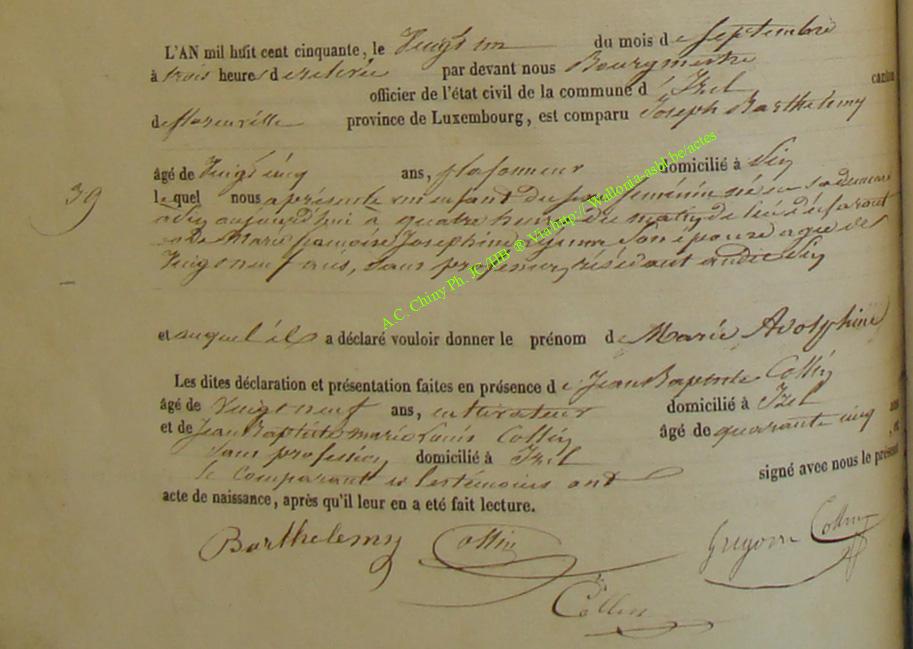 L'AN mil huit cent cinquante, le Vingt un du mois de Septembre
à trois heures de relevée par devant nous Bourgmestre
officier de l'état civil de la commune d' Izel canton
de florenville province de Luxembourg, est comparu Joseph Barthelemy
âgé de Vingt cinq ans, plafonneur domicilié à
39
lequel nous a présenté un enfant du sexe féminin né en sa demeure
aujourd'hui à quatre heures du matin, de lui déclarant
et De Marie françoise Joséphine son épouse agée de
Vingt neuf ans, sans profession, résidant audit
et auquel il a déclaré vouloir donner le prénom de Marie Adolphine
Les dites déclaration et présentation faites en présence de Jean Baptiste Collin
âgé de Vingt neuf ans, cultivateur domicilié à Izel
et de Jean Baptiste marie Louis Collin âgé de quarante cinq ans
sans profession domicilié à Izel , et
le comparant et les témoins ont signé avec nous le présent
acte de naissance, après qu'il leur en a eté fait lecture.
Barthelemy Collin Collin
Collin
A.C. Chiny Ph. JC/HB ® Via http://Wallonia-asbl.be/actes